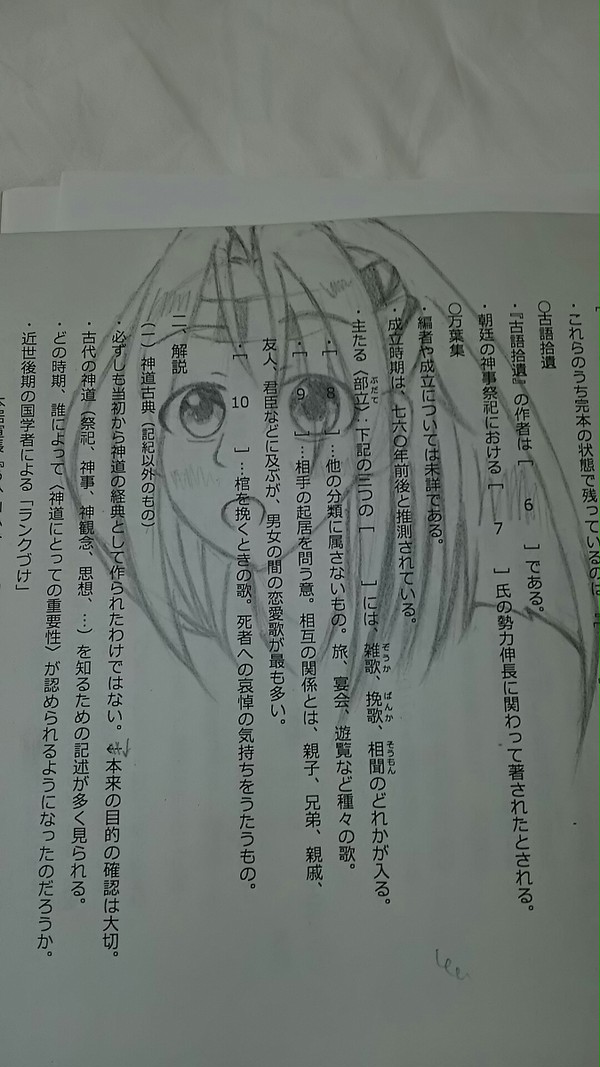 ・これらのうち完本の状態で残っているのは、［
〇古語拾遺
・『古語拾遺』の作者は［ 6 ］である。
・朝廷の神事祭祀における［ 7 ］氏の勢力伸長に関わって著されたとされる。
〇万葉集
・編者や成立については未詳である。
・成立時期は、七六〇年前後と推測されている。
・主たる〈部立〉…下記の三つの［ ］には、雑歌、挽歌、相聞のどれかが入る。
・［ 8 ］…他の分類に属さないもの。旅、宴会、遊覧など種々の歌。
・［ 9 ］…相手の起居を問う意。相互の関係とは、親子、兄弟、親戚、
友人、君臣などに及ぶが、男女の間の恋愛歌が最も多い。
・［ 10 ］…棺を挽くときの歌。死者への哀悼の気持ちをうたうもの。
二、解説
（一）神道古典（記紀以外のもの）
・必ずしも当初から神道の経典として作られたわけではない。 本来の目的の確認は大切。
・古代の神道（祭祀、神事、神観念、思想、…）を知るための記述が多く見られる。
・どの時期、誰によって〈神道にとっての重要性〉が認められるようになったのだろうか。
・近世後期の国学者による「ランクづけ」